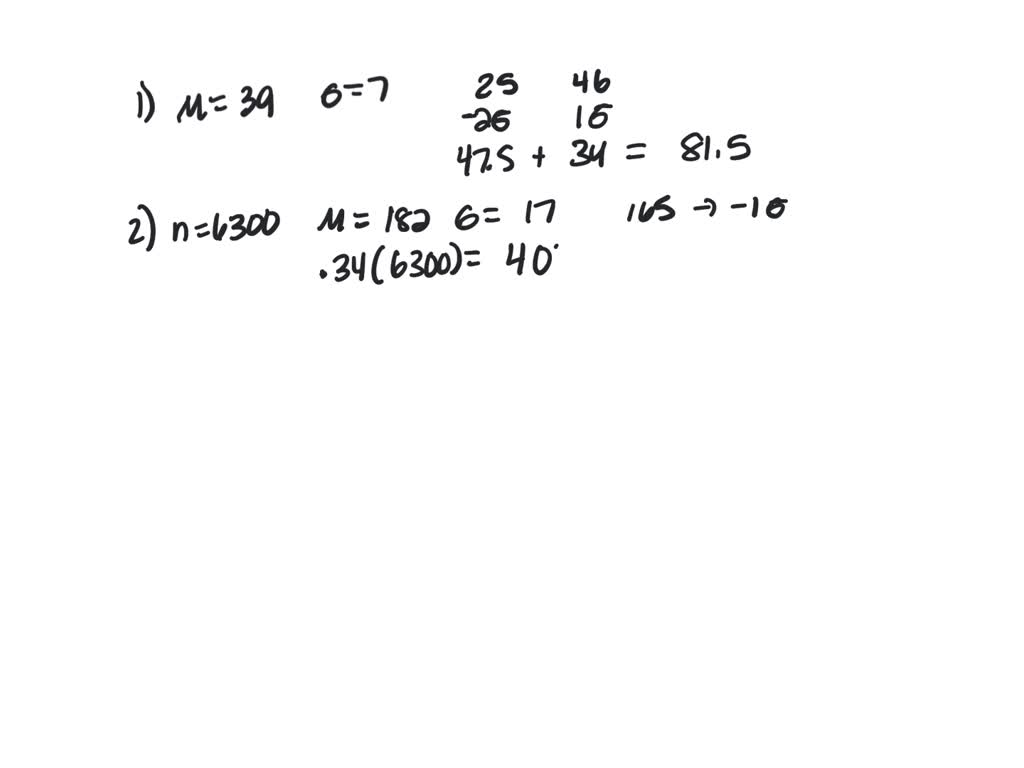 1) μ = 39 σ = 7 25 46
-2σ 1σ
47.5 + 34 = 81.5
2) n = 6300 μ = 182 σ = 17 165 → -1σ
.34(6300) = 40